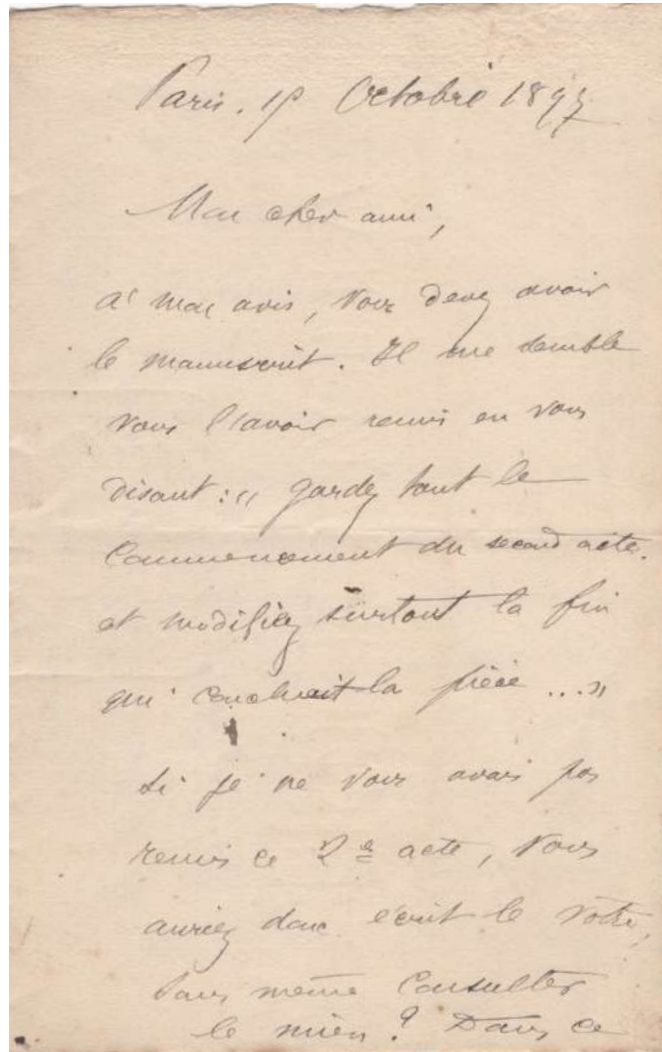 Paris. 19 Octobre 1897
Mon cher ami,
à mon avis, vous devez avoir
le manuscrit. Il me semble
vous l'avoir remis en vous
disant : « gardez tout le
commencement du second acte.
et modifiez surtout la fin
qui concluait la pièce ... »
Si je ne vous avais pas
remis ce 2e acte, vous
auriez donc écrit le vôtre,
sans même consulter
le mien ? Dans ce